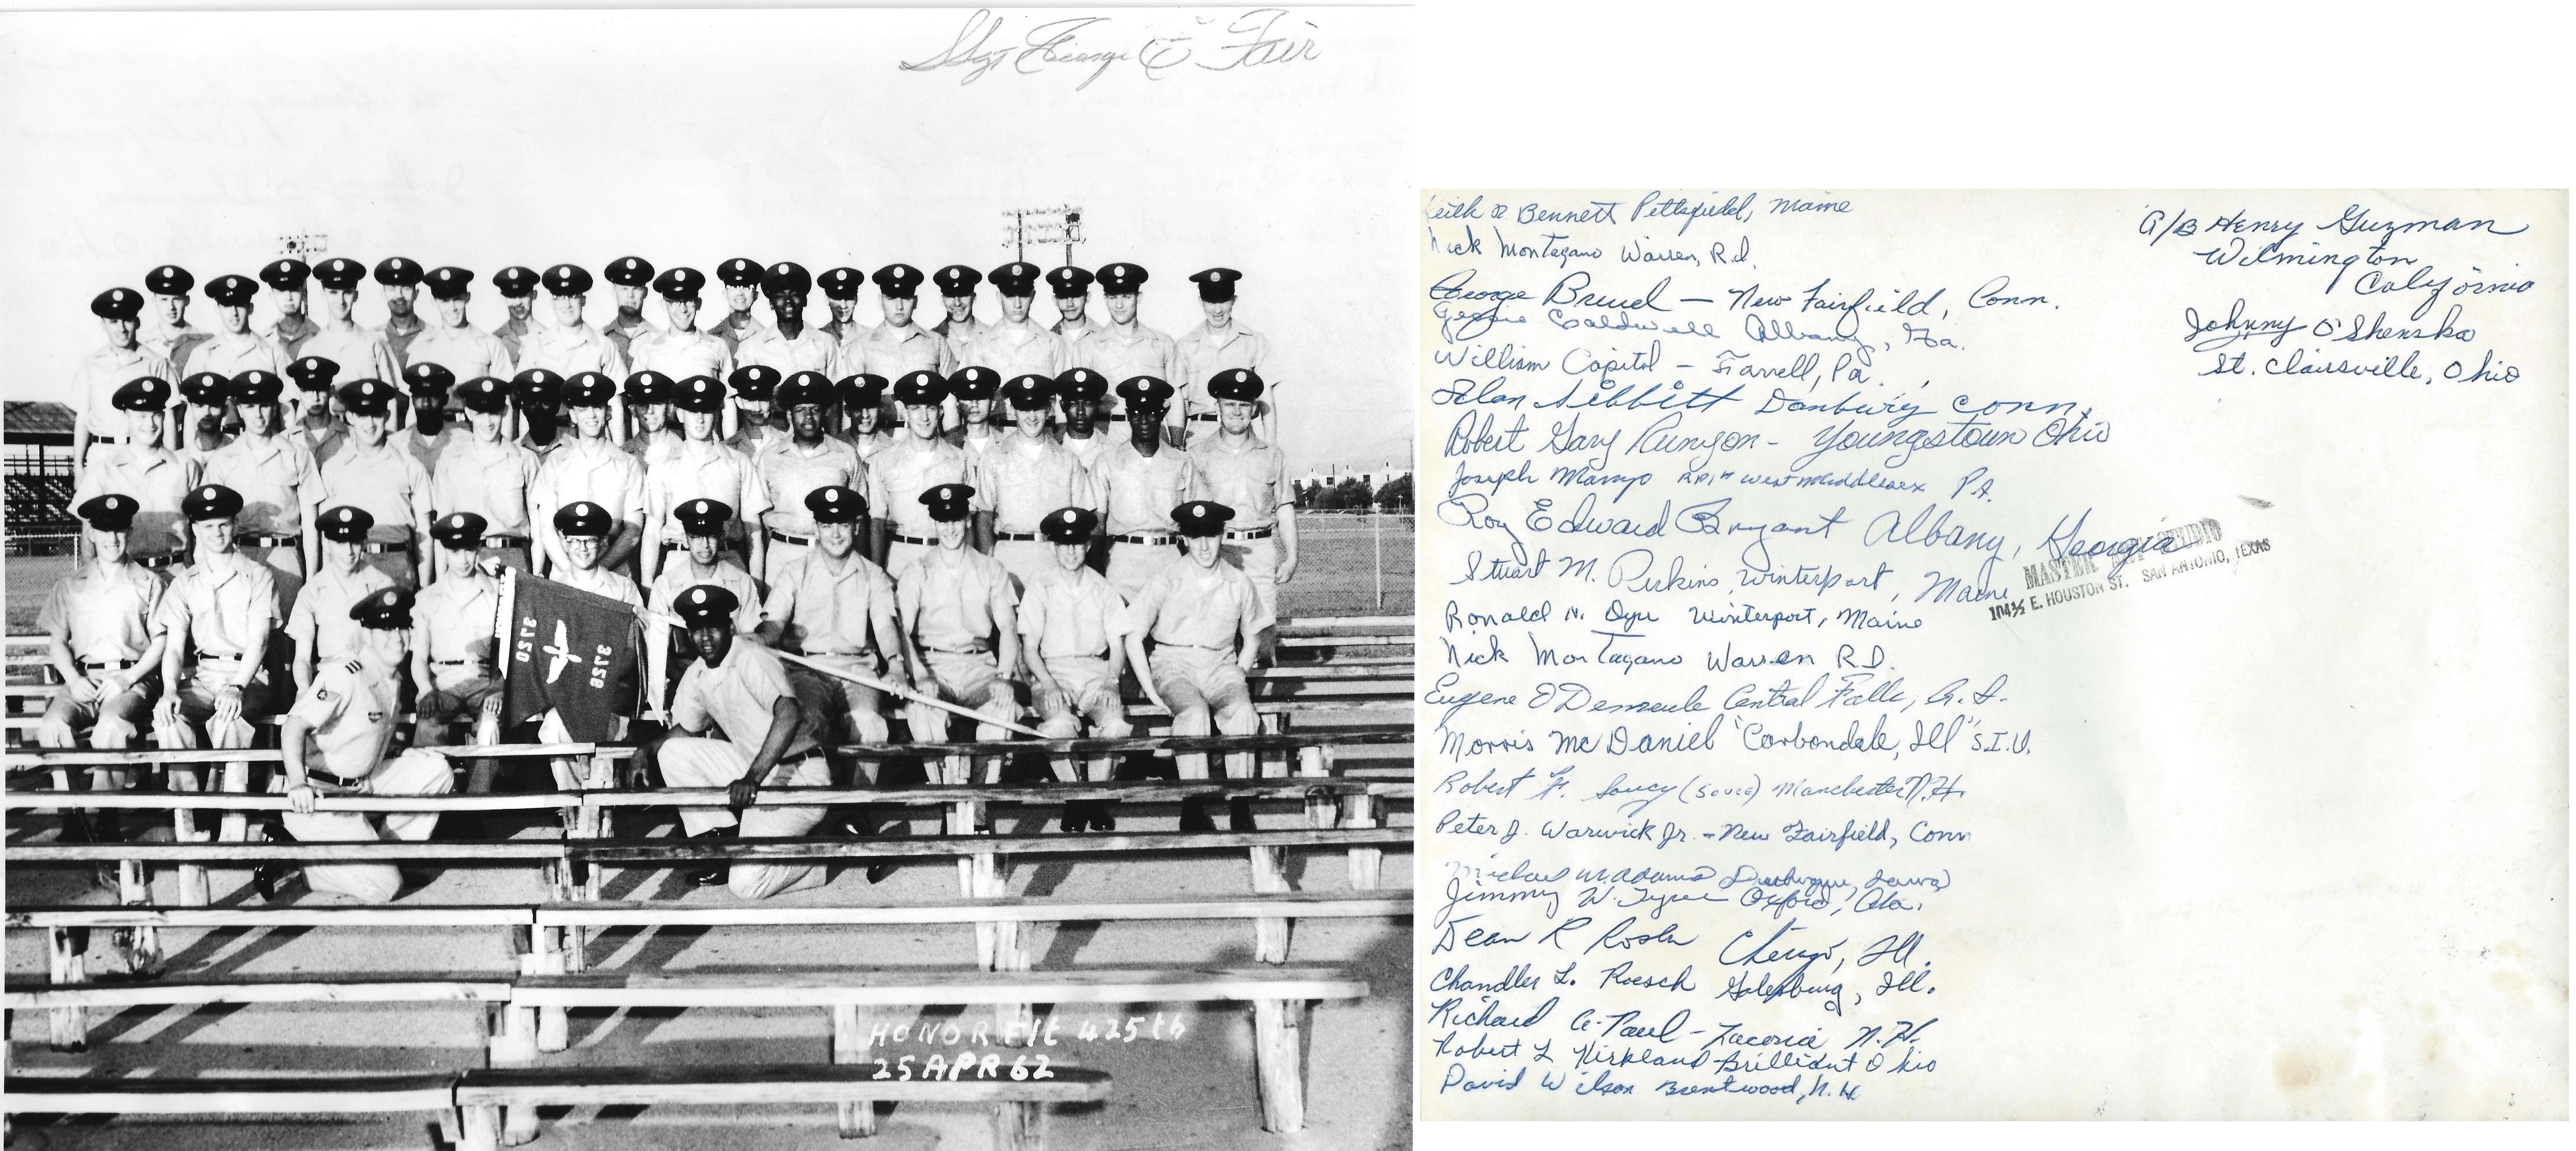 Ssgt George E Fair
3720
3728
HONOR Flt 425th
25 APR 62
Keith Bennett Pittsfield, Maine
Nick Montagano Warren, R.I.
George Breuel - New Fairfield, Conn.
Caldwell Albany, Ga.
William Capitol - Farrell, Pa.
Alan Sibbitt Danbury Conn.
Robert Gary Runyon - Youngstown Ohio
Joseph West Middlesex Pa.
Roy Edward Bryant Albany, Georgia
Stuart M. Perkins, Winterport, Maine
Ronald N. Dyer Winterport, Maine
Nick Montagano Warren R.I.
Eugene O Central Falls, R.I.
Morris McDaniel "Carbondale, Ill" S.I.U.
Robert F. Soucy (Souce) Manchester N.H.
Peter J. Warwick Jr. - New Fairfield, Conn
Michael W. Adams Dubuque, Iowa
Jimmy W. Oxford, Ala.
Dean R Chicago, Ill.
Chandler L. Roesch Galesburg, Ill.
Richard A. Paul - Laconia N.H.
Robert L Kirkland Brilliant Ohio
David Wilson Brentwood, N.H.
A/B Henry Guzman
Wilmington
California
Johnny O'Shenska
St. Clairsville, Ohio
MASTER STUDIO
104½ E. HOUSTON ST. SAN ANTONIO, TEXAS